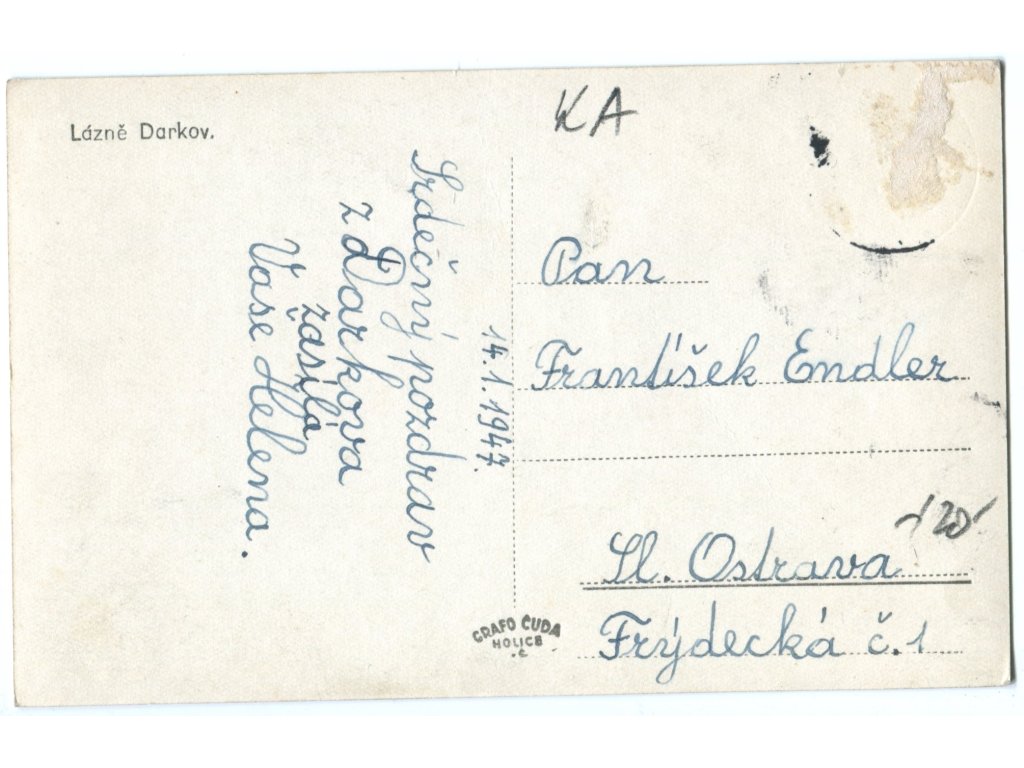 Lázně Darkov.
KA
14.1.1947.
Srdečný pozdrav
z Darkova
zasílá
Vaše Helena.
Pan
František Endler
Sl. Ostrava
Frýdecká č. 1
120
GRAFO ČUDA
HOLICE
.č